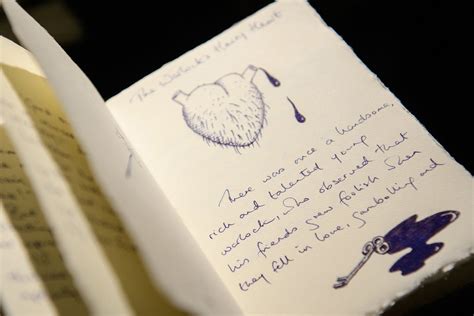 The Warlock's Hairy Heart
There was once a handsome,
rich and talented young
warlock, who observed that
his friends grew foolish when
they fell in love, gambolling and